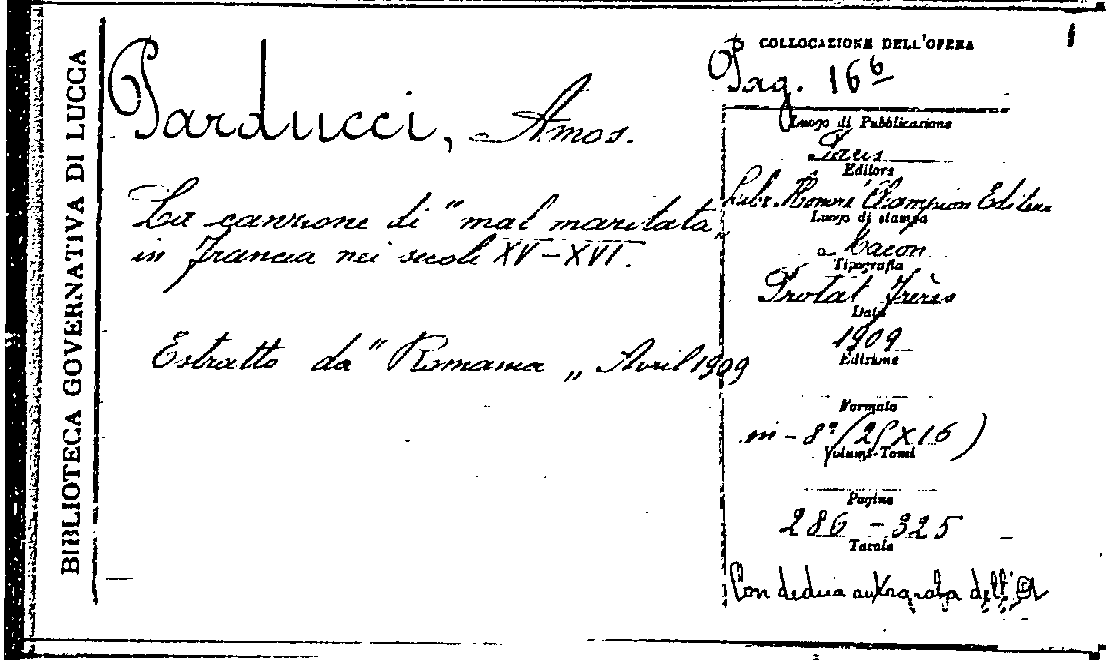 BIBLIOTECA GOVERNATIVA DI LUCCA
Parducci, Amos.
La canzone di "mal maritata„
in Francia nei secoli XV-XVI.
Estratto da "Romania„ Avril 1909
1
COLLOCAZIONE DELL'OPERA
Pag. 16⁶
Luogo di Pubblicazione
Paris
Editore
Libr. Honoré Champion Editeur
Luogo di stampa
a Macon
Tipografia
Protat Frères
Data
1909
Edizione
Formato
in-8º (25x16)
Volumi-Tomi
Pagine
286-325
Tavole
Con dedica autografa dell'A